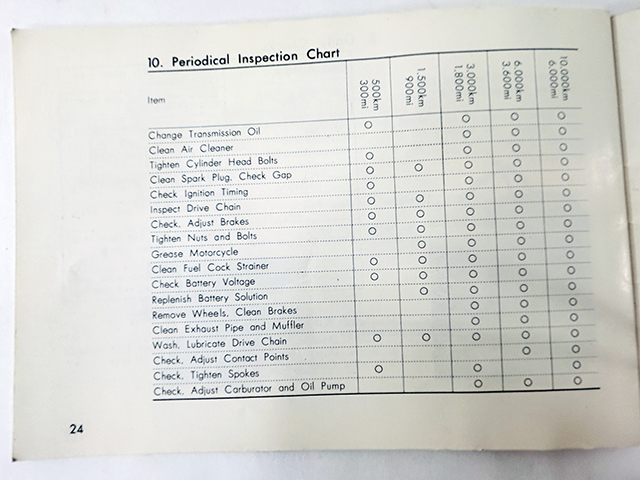 10. Periodical Inspection Chart
Item 500km 300mi 1,500km 900mi 3,000km 1,800mi 6,000km 3,600mi 10,000km 6,000mi
Change Transmission Oil ○ ○ ○ ○
Clean Air Cleaner ○ ○ ○
Tighten Cylinder Head Bolts ○ ○ ○ ○
Clean Spark Plug. Check Gap ○ ○ ○ ○ ○
Check Ignition Timing ○ ○ ○ ○
Inspect Drive Chain ○ ○ ○ ○ ○
Check. Adjust Brakes ○ ○ ○ ○ ○
Tighten Nuts and Bolts ○ ○ ○ ○ ○
Grease Motorcycle ○ ○ ○ ○
Clean Fuel Cock Strainer ○ ○ ○ ○ ○
Check Battery Voltage ○ ○ ○ ○ ○
Replenish Battery Solution ○ ○ ○ ○
Remove Wheels. Clean Brakes ○ ○ ○
Clean Exhaust Pipe and Muffler ○ ○ ○
Wash. Lubricate Drive Chain ○ ○ ○ ○ ○
Check. Adjust Contact Points ○ ○
Check. Tighten Spokes ○ ○ ○
Check. Adjust Carburator and Oil Pump ○ ○ ○
24